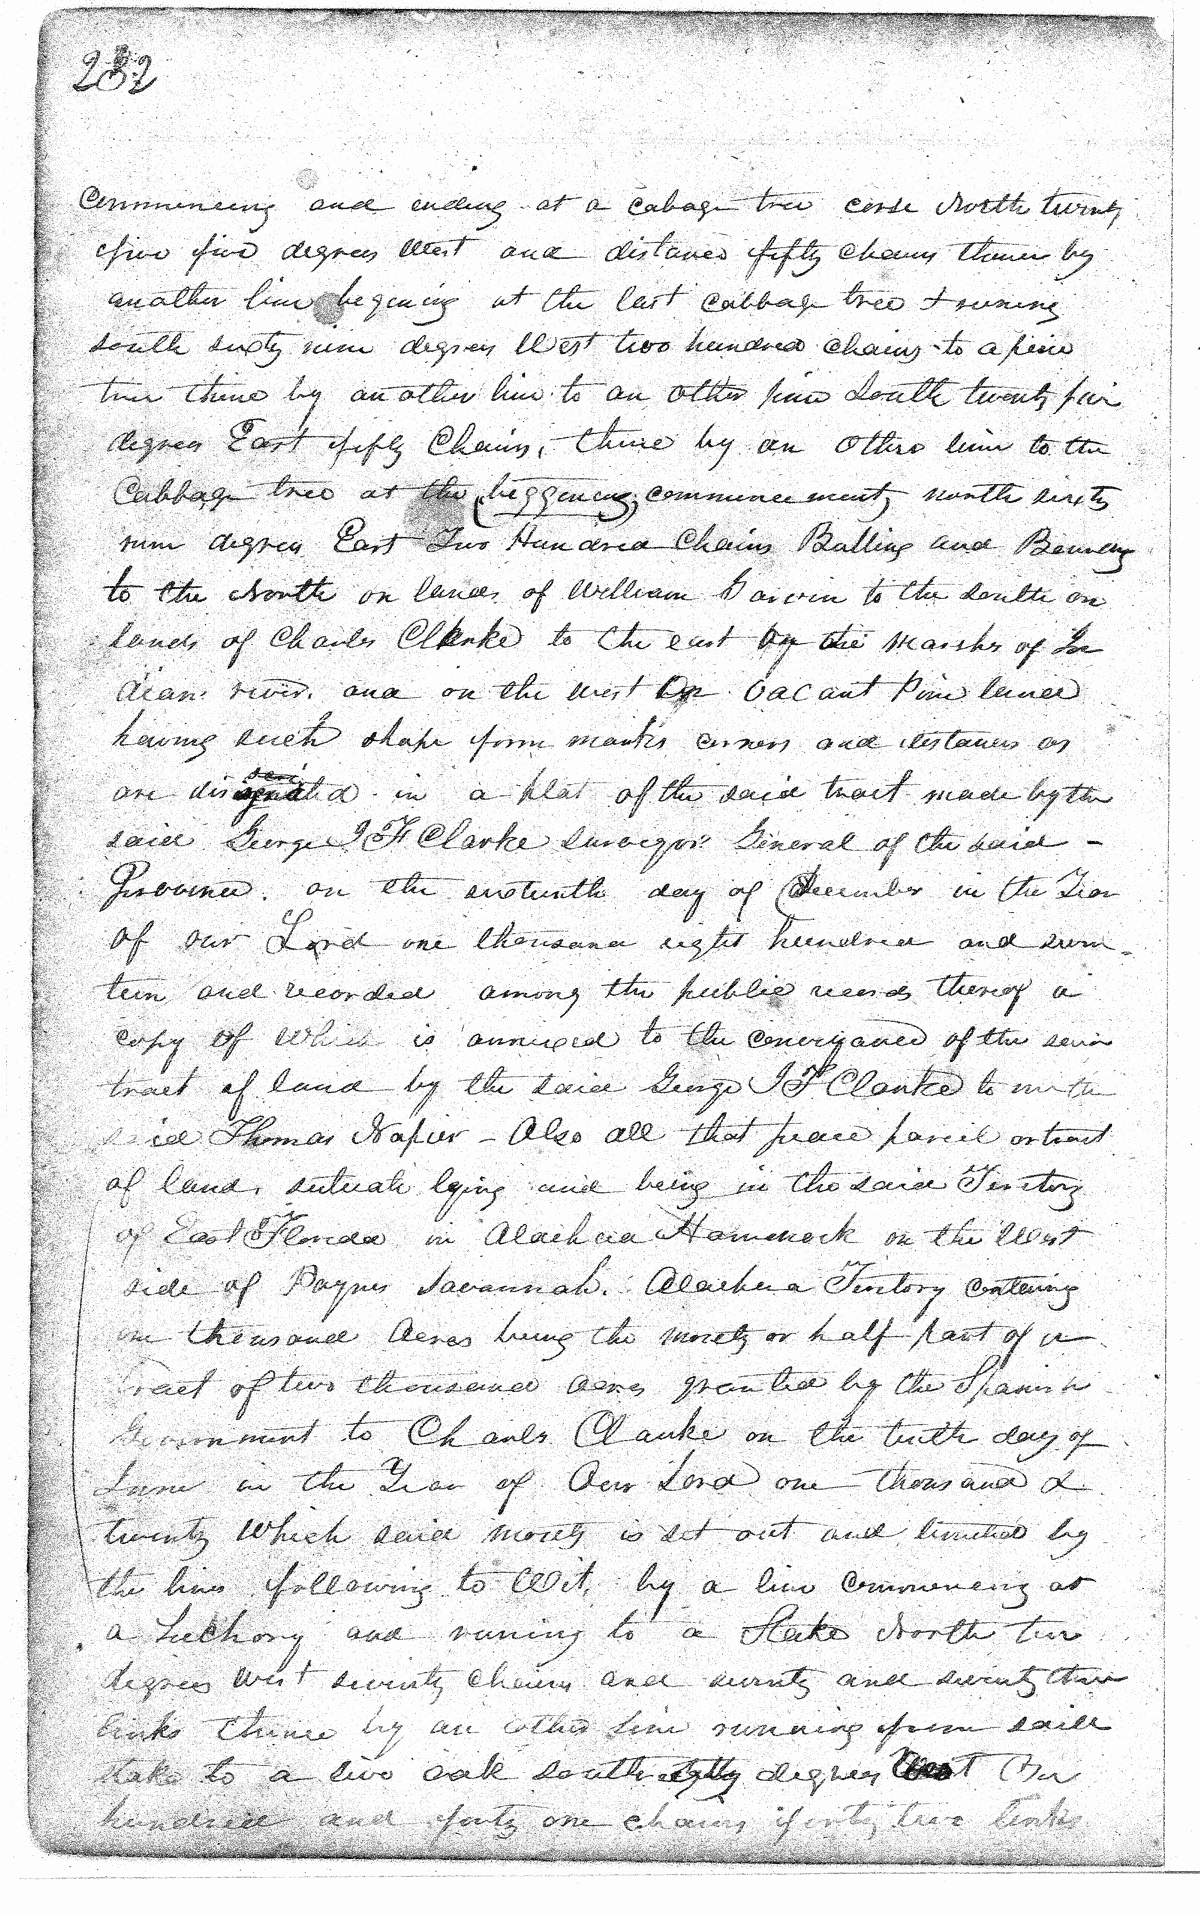 232
Commencing and ending at a cabage tree corse North twenty
five five degrees West and distance fifty chains thence by
another line begining at the last cabbage tree & runing
south sixty nine degrees West two hundred chains to a pine
tree thence by another line to an other pine South twenty five
degrees East fifty Chains, thence by an other line to the
Cabbage tree at the (beggening) commencement north sixty
nine degrees East Two Hundred Chains Butting and Bounding
to the North on lands of William Garvin to the south on
lands of Charles Clarke to the east by the Marshes of In
dian river. and on the west on vacant Pine land
having such shape form marks corners and distances as
are designated in a plat of the said tract made by the
said George J F Clarke surveyor General of the said -
Province. on the sixteenth day of December in the Year
of our Lord one thousand eight hundred and seven-
teen and recorded among the public records thereof a
copy of which is annexed to the conveyance of the said
tract of land by the said George J F Clarke to me the
said Thomas Napier - Also all that peace parcel or tract
of land, situate lying and being in the said Territory
of East Florida in Alachua Hammock on the West
side of Paynes Savannah. Alachua Teritory containg
one thousand Acres being the moiety or half part of a
tract of two thousand acres granted by the Spanish
Government to Charles Clarke on the tenth day of
June in the Year of Our Lord one thousand &
twenty Which said moiety is set out and limited by
the lines following to Wit, by a line commencing at
a hickory and runing to a Stake North ten
degrees west seventy chains and seventy and seventy three
links thence by an other line running from said
stake to a live oak south eighty degrees West One
hundred and forty one chains forty two links